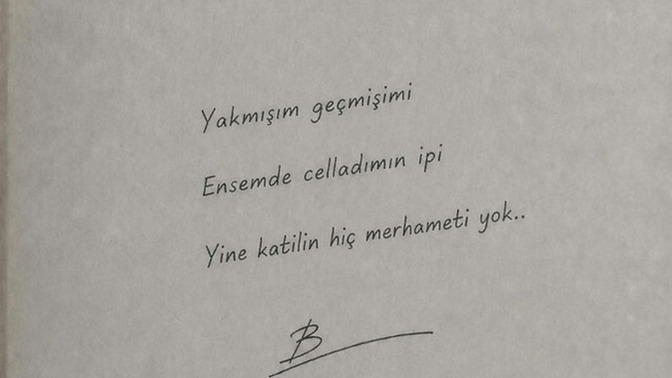 Yakmışım geçmişimi
Ensemde celladımın ipi
Yine katilin hiç merhameti yok..
B